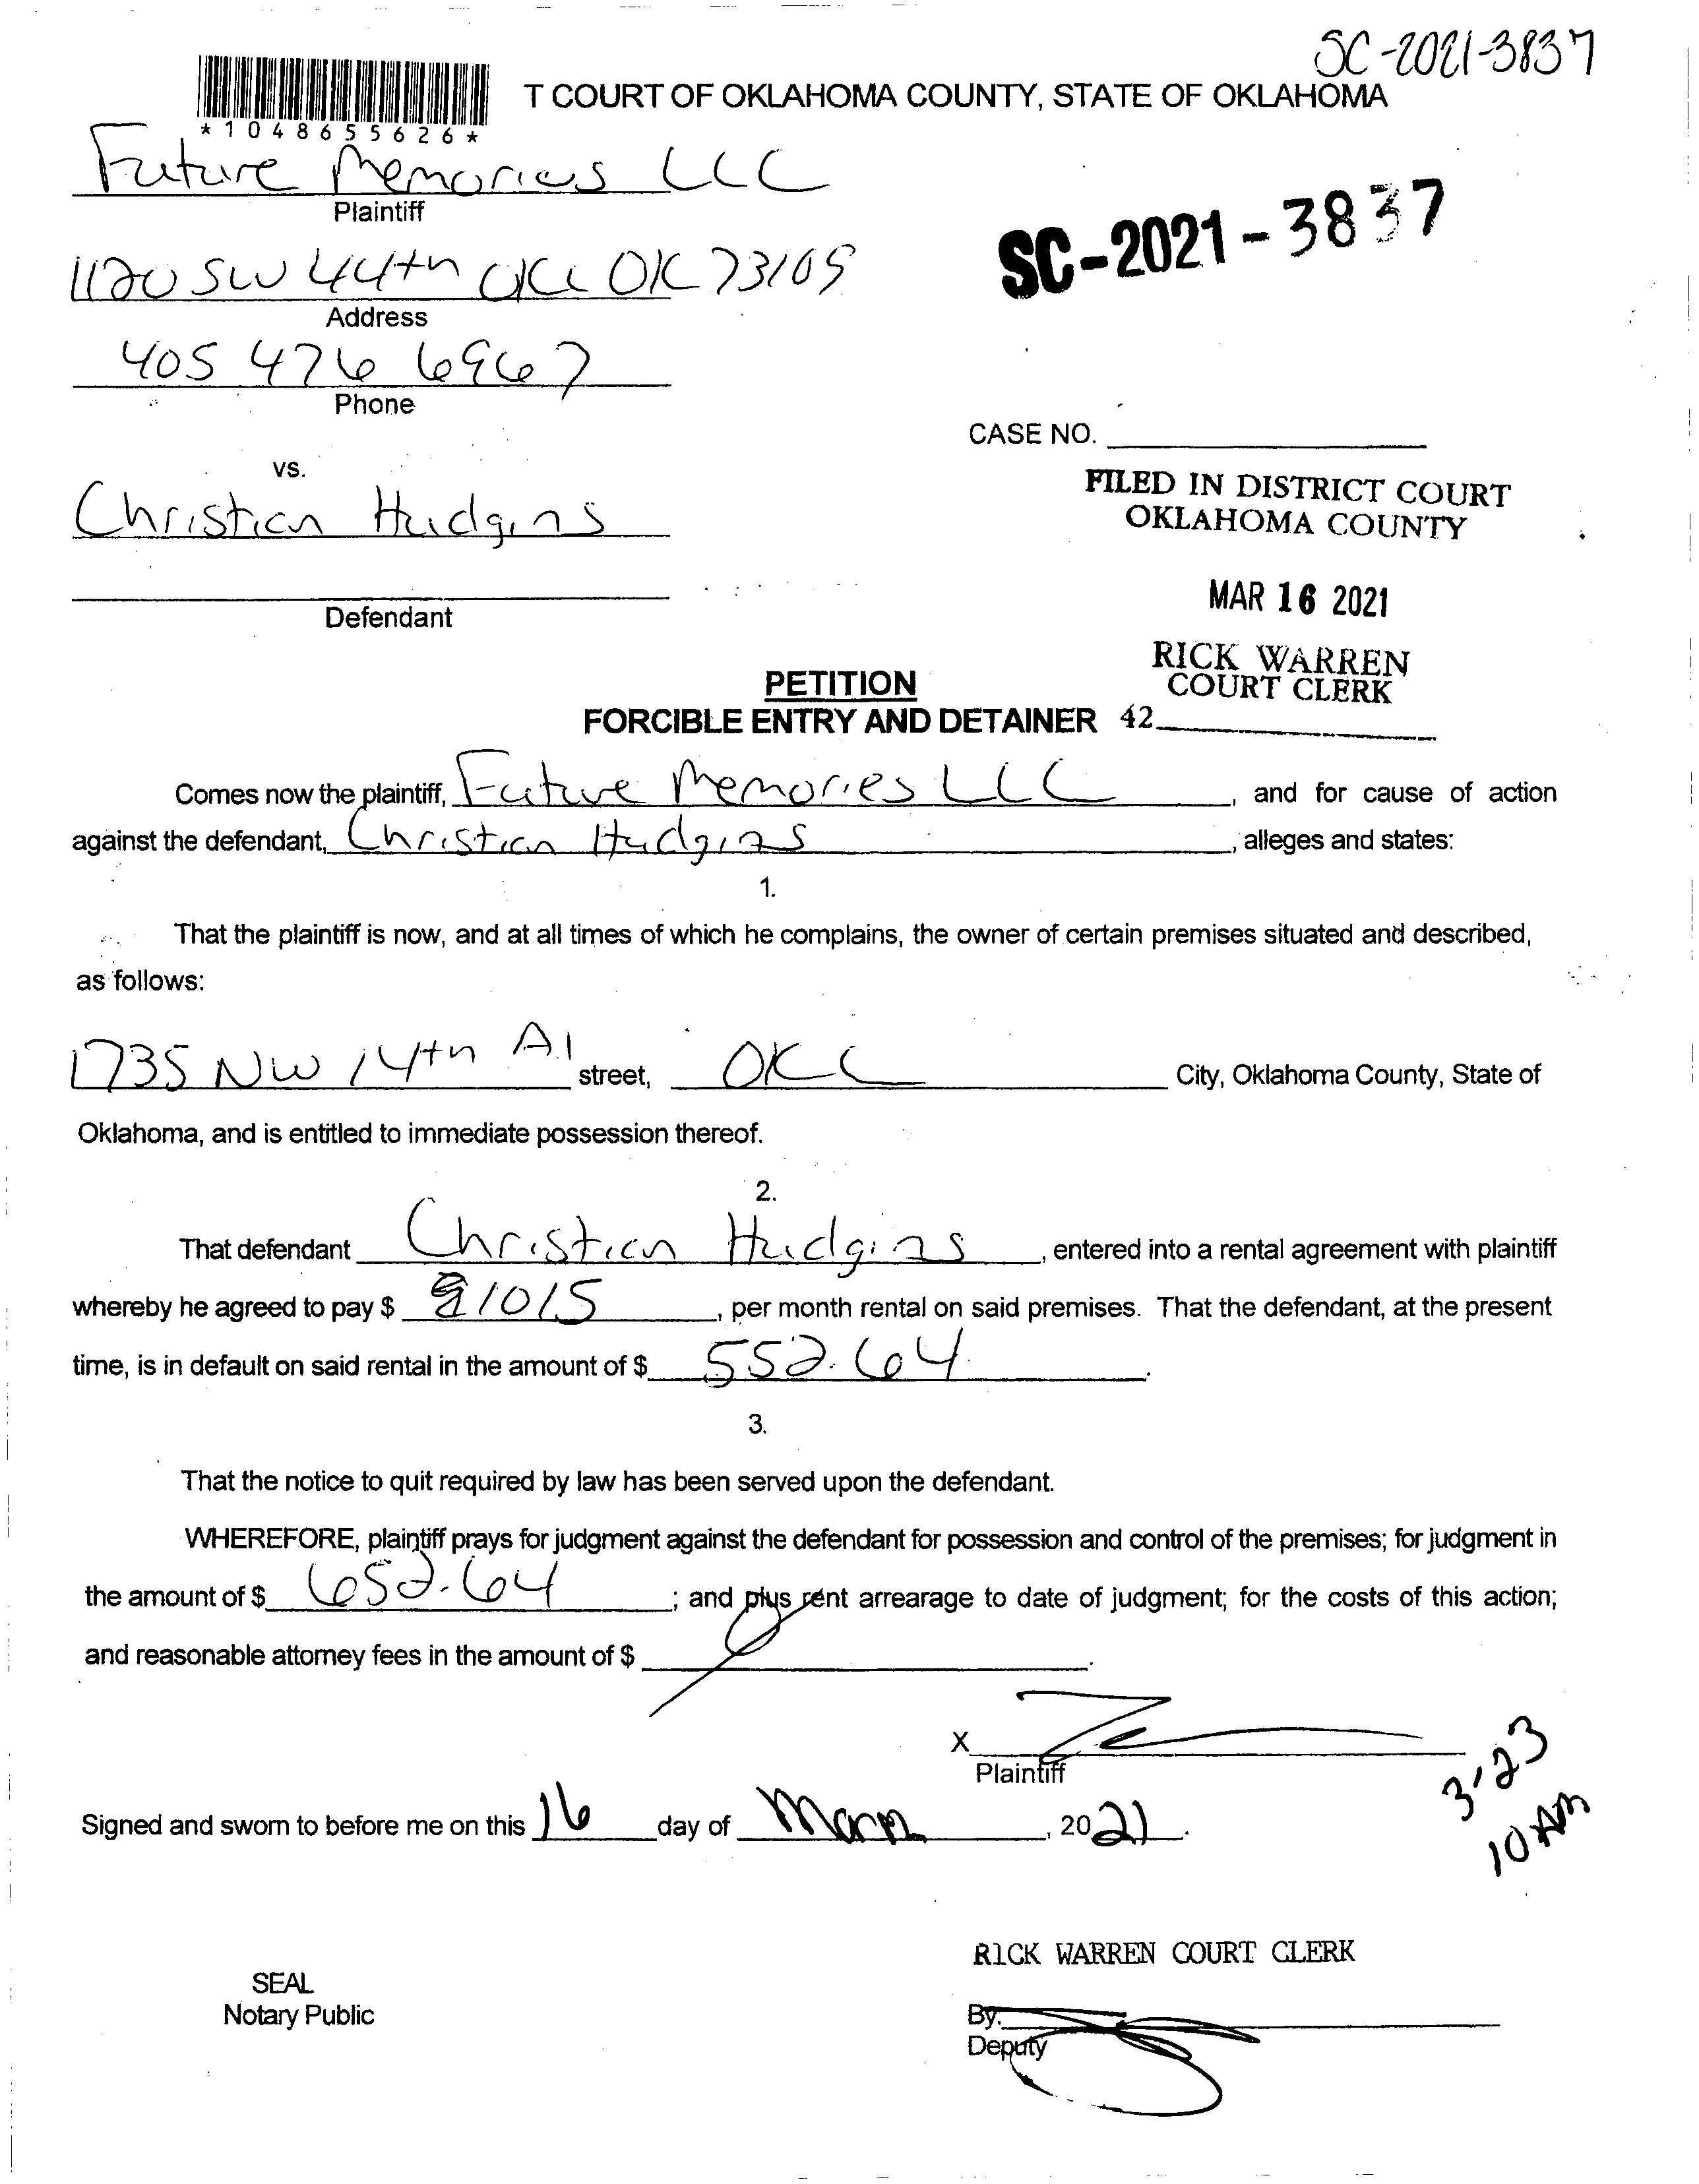 SC-2021-3837
T COURT OF OKLAHOMA COUNTY, STATE OF OKLAHOMA
*1048655626*
Future Memories LLC
Plaintiff
SC-2021-3837
1120 SW 44th OKC OK 73109
Address
405 476 6967
Phone
CASE NO.
vs.
Christian Hudgins
FILED IN DISTRICT COURT
OKLAHOMA COUNTY
Defendant
MAR 16 2021
RICK WARREN
COURT CLERK
PETITION
FORCIBLE ENTRY AND DETAINER 42
Comes now the plaintiff, Future Memories LLC, and for cause of action
against the defendant, Christian Hudgins, alleges and states:
1.
That the plaintiff is now, and at all times of which he complains, the owner of certain premises situated and described,
as follows:
1735 NW 14th A1 street, OKC City, Oklahoma County, State of
Oklahoma, and is entitled to immediate possession thereof.
2.
That defendant Christian Hudgins, entered into a rental agreement with plaintiff
whereby he agreed to pay $ 1015, per month rental on said premises. That the defendant, at the present
time, is in default on said rental in the amount of $ 552.64.
3.
That the notice to quit required by law has been served upon the defendant.
WHEREFORE, plaintiff prays for judgment against the defendant for possession and control of the premises; for judgment in
the amount of $ 652.64; and plus rent arrearage to date of judgment; for the costs of this action;
and reasonable attorney fees in the amount of $.
X
Plaintiff
3-23
10 AM
Signed and sworn to before me on this 16 day of March, 2021.
RICK WARREN COURT CLERK
SEAL
Notary Public
By.
Deputy